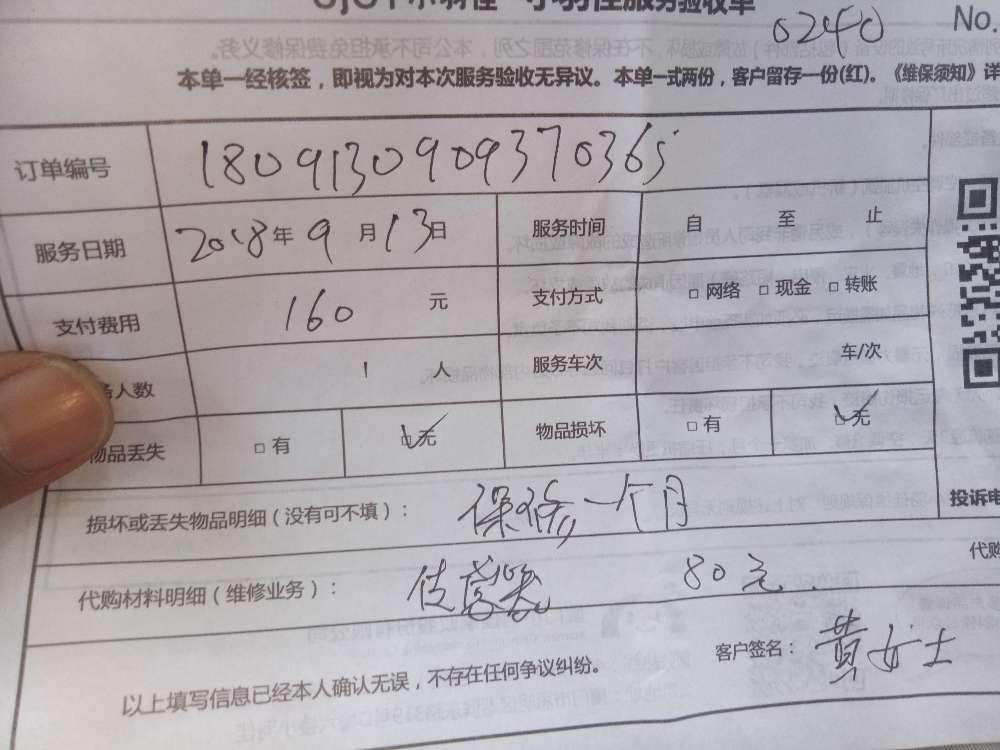 小羽佳 小羽佳服务验收单
0240 No.
本单一经核签，即视为对本次服务验收无异议。本单一式两份，客户留存一份(红)。《维保须知》详
订单编号 1809130909370365
服务日期 2018年9月13日 服务时间 自 至 止
支付费用 160 元 支付方式 □ 网络 □ 现金 □ 转账
人数 1 人 服务车次 车/次
物品丢失 □ 有 ☑无 物品损坏 □ 有 ☑无
损坏或丢失物品明细（没有可不填）： 保修一个月
投诉电
代购材料明细（维修业务）： 80元 代购
以上填写信息已经本人确认无误，不存在任何争议纠纷。 客户签名： 黄女士